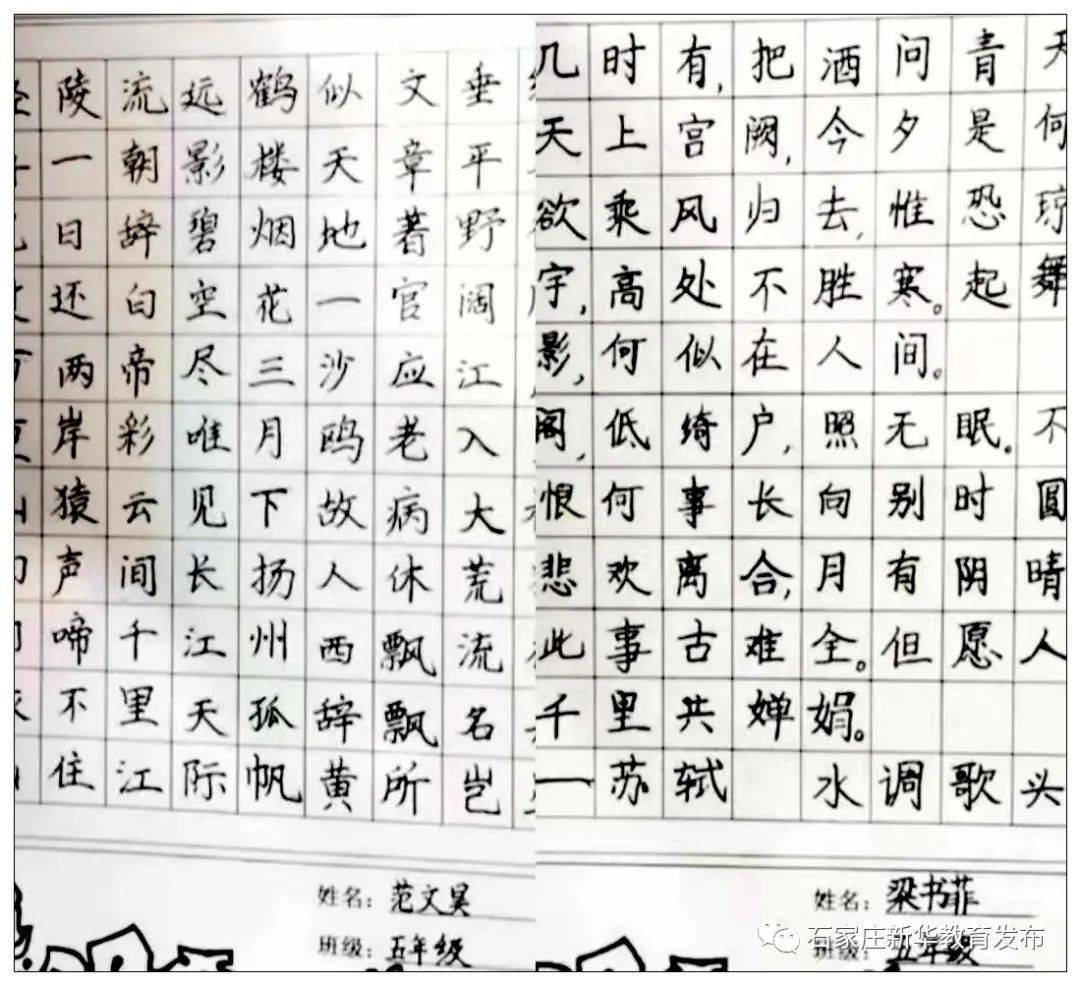 垂平野阔江入大荒流名岂
文章著官应老病休飘飘所
似天地一沙鸥故人西辞黄
鹤楼烟花三月下扬州孤帆
远影碧空尽唯见长江天际
流朝辞白帝彩云间千里江
陵一日还两岸猿声啼不住
姓名：范文昊
班级：五年级
几时有，把酒问青天
天上宫阙，今夕是何
欲乘风归去，惟恐琼
宇，高处不胜寒。起舞
影，何似在人间。
阁，低绮户，照无眠。不
恨何事长向别时圆
悲欢离合，月有阴晴
此事古难全。但愿人
千里共婵娟。
—苏轼 水调歌头
姓名：梁书菲
班级：五年级
石家庄新华教育发布